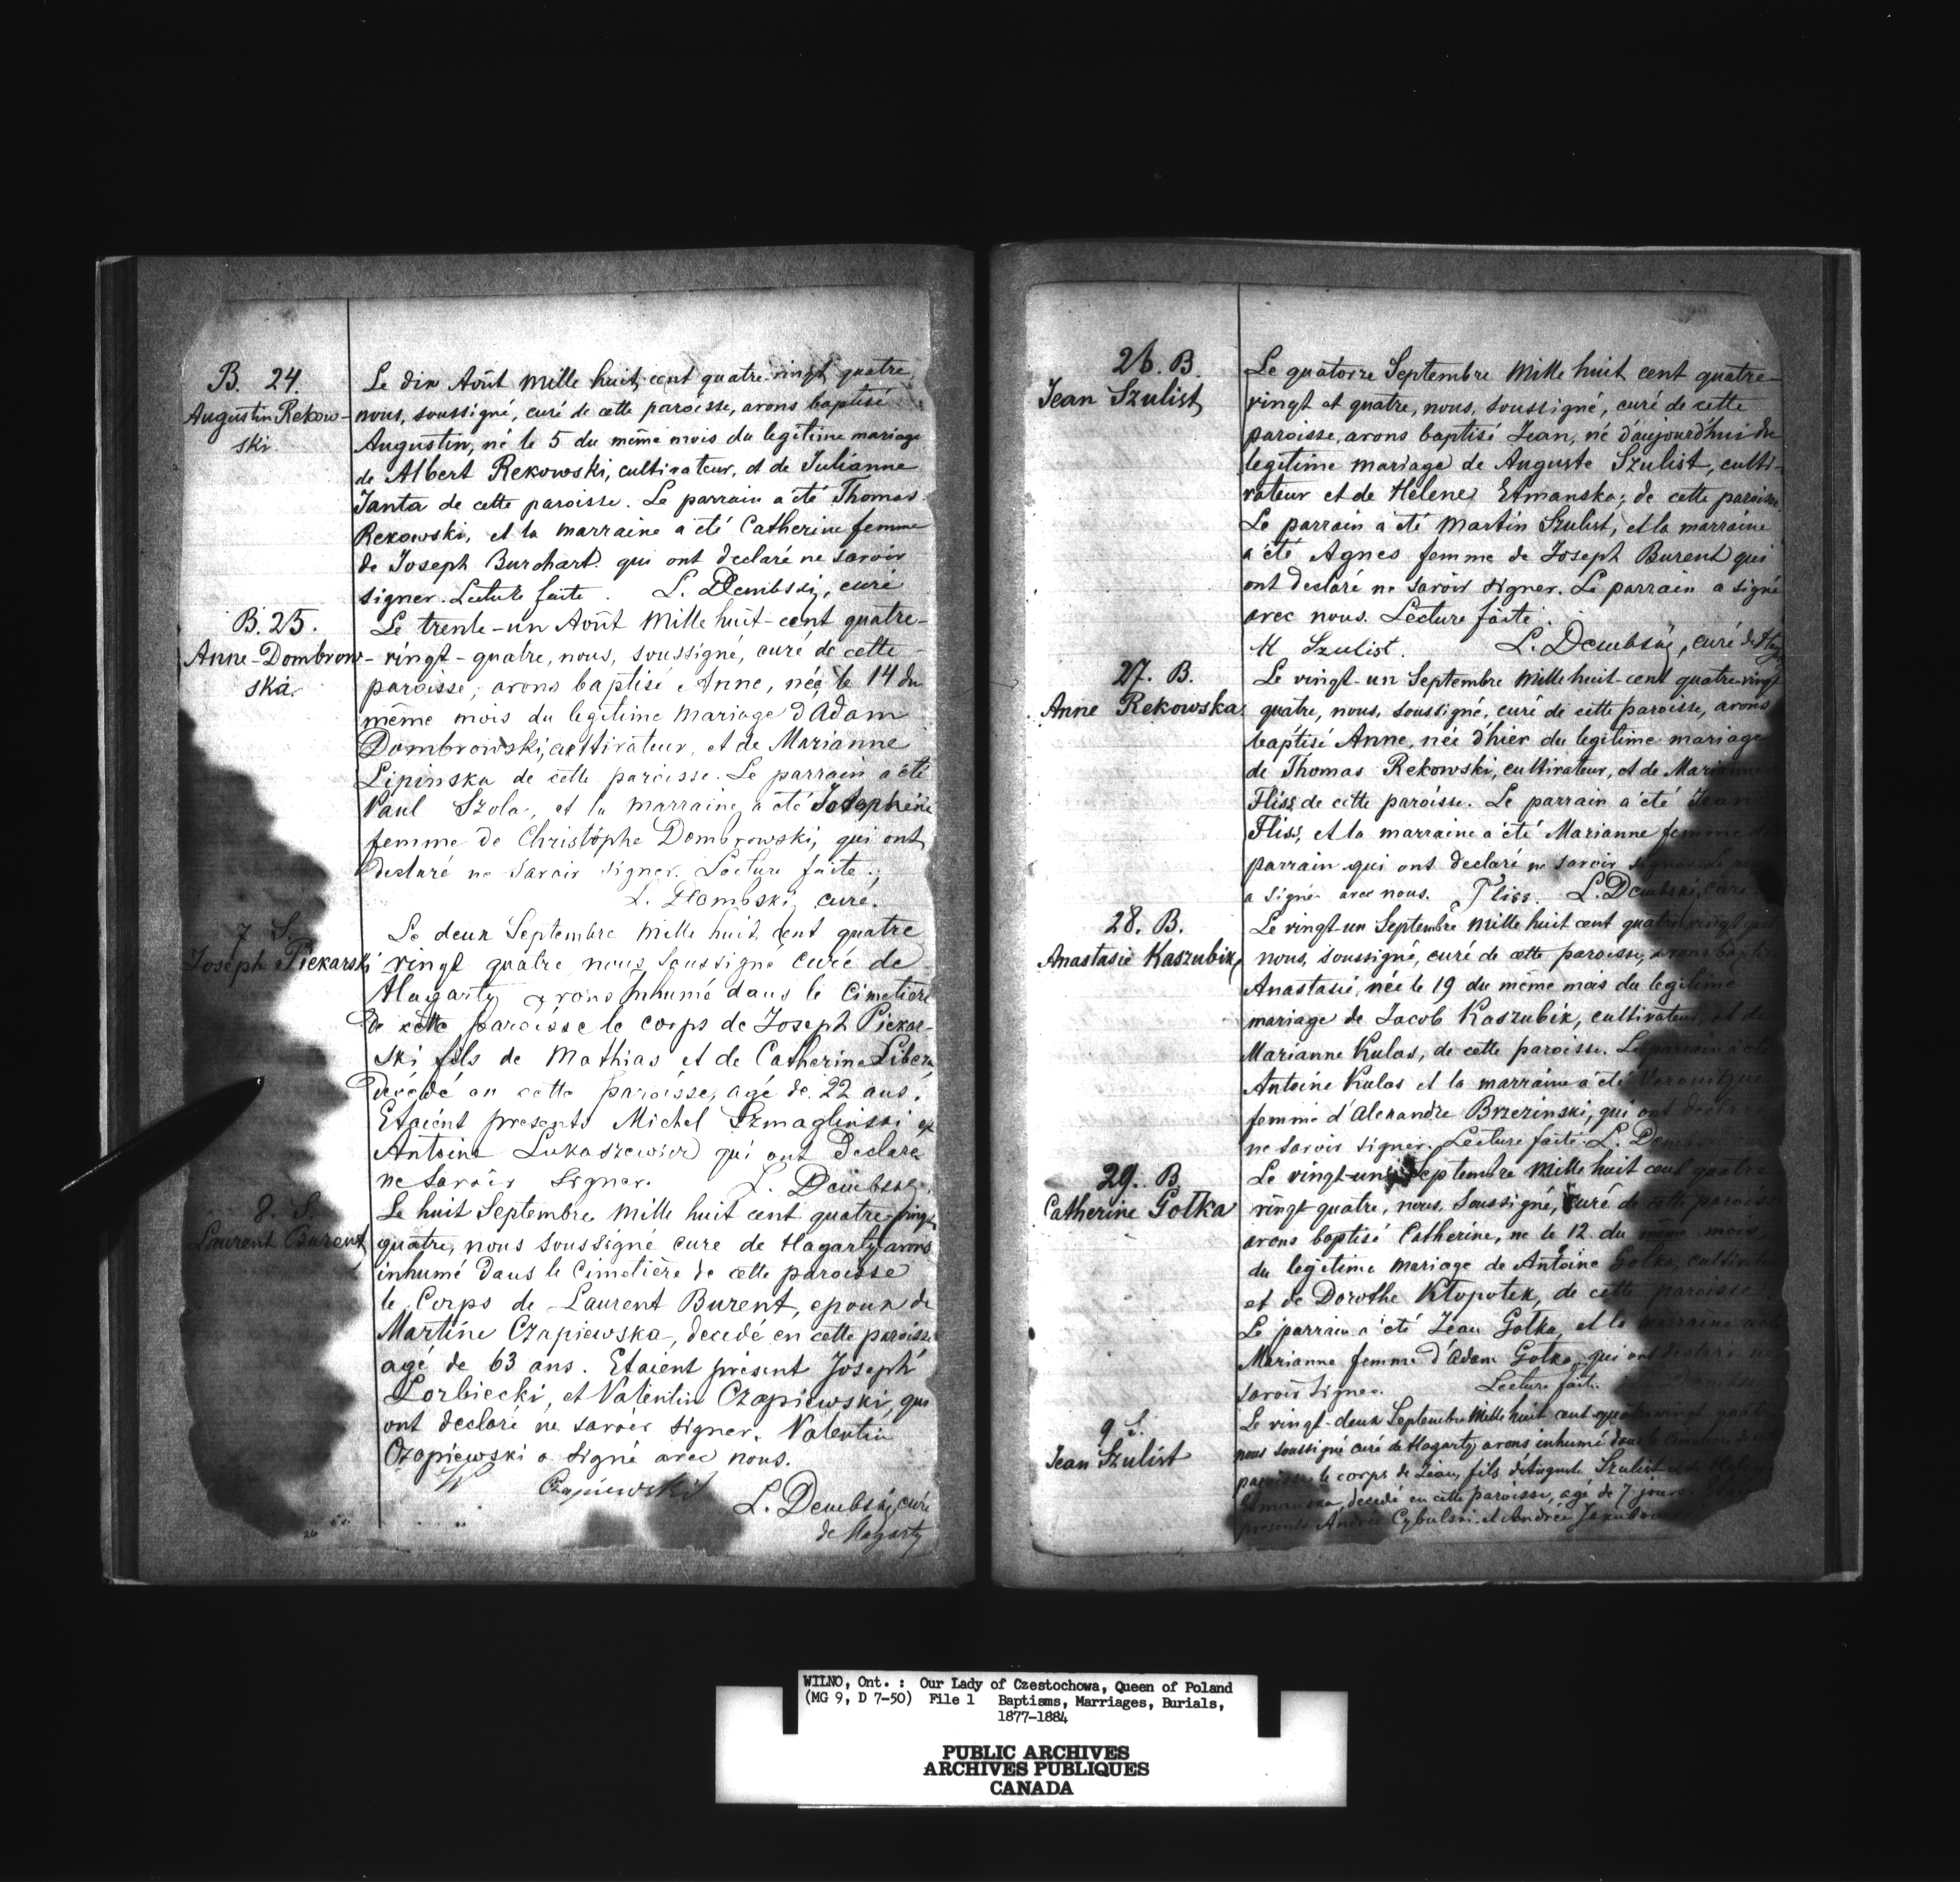 B. 24.
Augustin Rekow-
ski
Le dix Août mille huit cent quatre-vingt quatre
nous, soussigné, curé de cette paroisse, avons baptisé
Augustin, né le 5 du même mois du legitime mariage
de Albert Rekowski, cultivateur, et de Julianne
Janta de cette paroisse. Le parrain a été Thomas
Rekowski, et la marraine a été Catherine femme
de Joseph Burchart qui ont declaré ne savoir
signer. Lecture faite. L. Dembski, curé
B. 25.
Anne-Dombrow-
ska
Le trente-un Août mille huit-cent quatre-
vingt-quatre, nous, soussigné, curé de cette
paroisse, avons baptisé Anne, née le 14 du
même mois du legitime mariage d'Adam
Dombrowski, cultivateur, et de Marianne
Lipinska de cette paroisse. Le parrain a été
Paul Szola, et la marraine a été Josephine
femme de Christophe Dombrowski, qui ont
declaré ne savoir signer. Lecture faite.
L. Dembski, curé.
7 S.
Joseph Piekarski
Le deux Septembre mille huit cent quatre
vingt quatre nous soussigné curé de
Hagarty avons inhumé dans le Cimetière
de cette paroisse le corps de Joseph Piekar-
ski fils de Mathias et de Catherine Libera
décédé en cette paroisse, agé de 22 ans.
Etaient presents Michel Szmaglinski et
Antoine Lukaszewicz qui ont declaré
ne savoir signer. L. Dembski
8. S.
Laurent Burent
Le huit Septembre mille huit cent quatre-vingt
quatre, nous soussigné curé de Hagarty avons
inhumé dans le Cimetière de cette paroisse
le Corps de Laurent Burent, epoux de
Martine Czapiewska, decedé en cette paroisse
agé de 63 ans. Etaient présent Joseph
Lorbiecki, et Valentin Czapiewski, qui
ont declaré ne savoir signer. Valentin
Czapiewski a signé avec nous.
W Czapiewski
L. Dembski, curé
de Hagarty
26. B.
Jean Szulist
Le quatorze Septembre mille huit cent quatre-
vingt et quatre, nous, soussigné, curé de cette
paroisse, avons baptisé Jean, né d'aujourd'hui du
legitime mariage de Auguste Szulist, culti-
vateur et de Helene Etmanska, de cette paroisse.
Le parrain a été Martin Szulist, et la marraine
a été Agnes femme de Joseph Burent qui
ont declaré ne savoir signer. Le parrain a signé
avec nous. Lecture faite.
M Szulist. L. Dembski, curé de Hag
27. B.
Anne Rekowska
Le vingt-un Septembre mille huit-cent quatre-vingt
quatre, nous, soussigné, curé de cette paroisse, avons
baptisé Anne, née d'hier du legitime mariage
de Thomas Rekowski, cultivateur, et de Marianne
Fliss de cette paroisse. Le parrain a été Jean
Fliss, et la marraine a été Marianne femme
parrain qui ont declaré ne savoir signer. Le
a signé avec nous. Fliss. L. Dembski, curé
28. B.
Anastasie Kaszubik
Le vingt-un Septembre mille huit cent quatre-vingt
nous, soussigné, curé de cette paroisse, avons baptisé
Anastasie, née le 19 du même mois du legitime
mariage de Jacob Kaszubik, cultivateur, et de
Marianne Kulas, de cette paroisse. Le parrain a été
Antoine Kulas et la marraine a été Veronique
femme d'Alexandre Brzezinski, qui ont declaré
ne savoir signer. Lecture faite. L. Dembski
29. B.
Catherine Golka
Le vingt-un Septembre mille huit cent quatre
vingt quatre, nous, soussigné, curé de cette paroisse
avons baptisé Catherine, ne le 12 du même mois
du legitime mariage de Antoine Golka, cultivateur
et de Dorothe Klopotek, de cette paroisse
Le parrain a été Jean Golka, et la marraine a été
Marianne femme d'Adam Golka, qui ont declaré ne
savoir signer. Lecture faite.
9 S.
Jean Szulist
Le vingt-deux Septembre mille huit cent quatre-vingt quatre
nous soussigné curé de Hagarty avons inhumé dans le Cimetière de
paroisse le corps de Jean, fils d'Auguste Szulist et de Helene
Etmanska, decedé en cette paroisse, agé de 7 jours.
presents André Cybulski et André
WILNO, Ont. : Our Lady of Czestochowa, Queen of Poland
(MG 9, D 7-50) File 1 Baptisms, Marriages, Burials,
1877-1884
PUBLIC ARCHIVES
ARCHIVES PUBLIQUES
CANADA